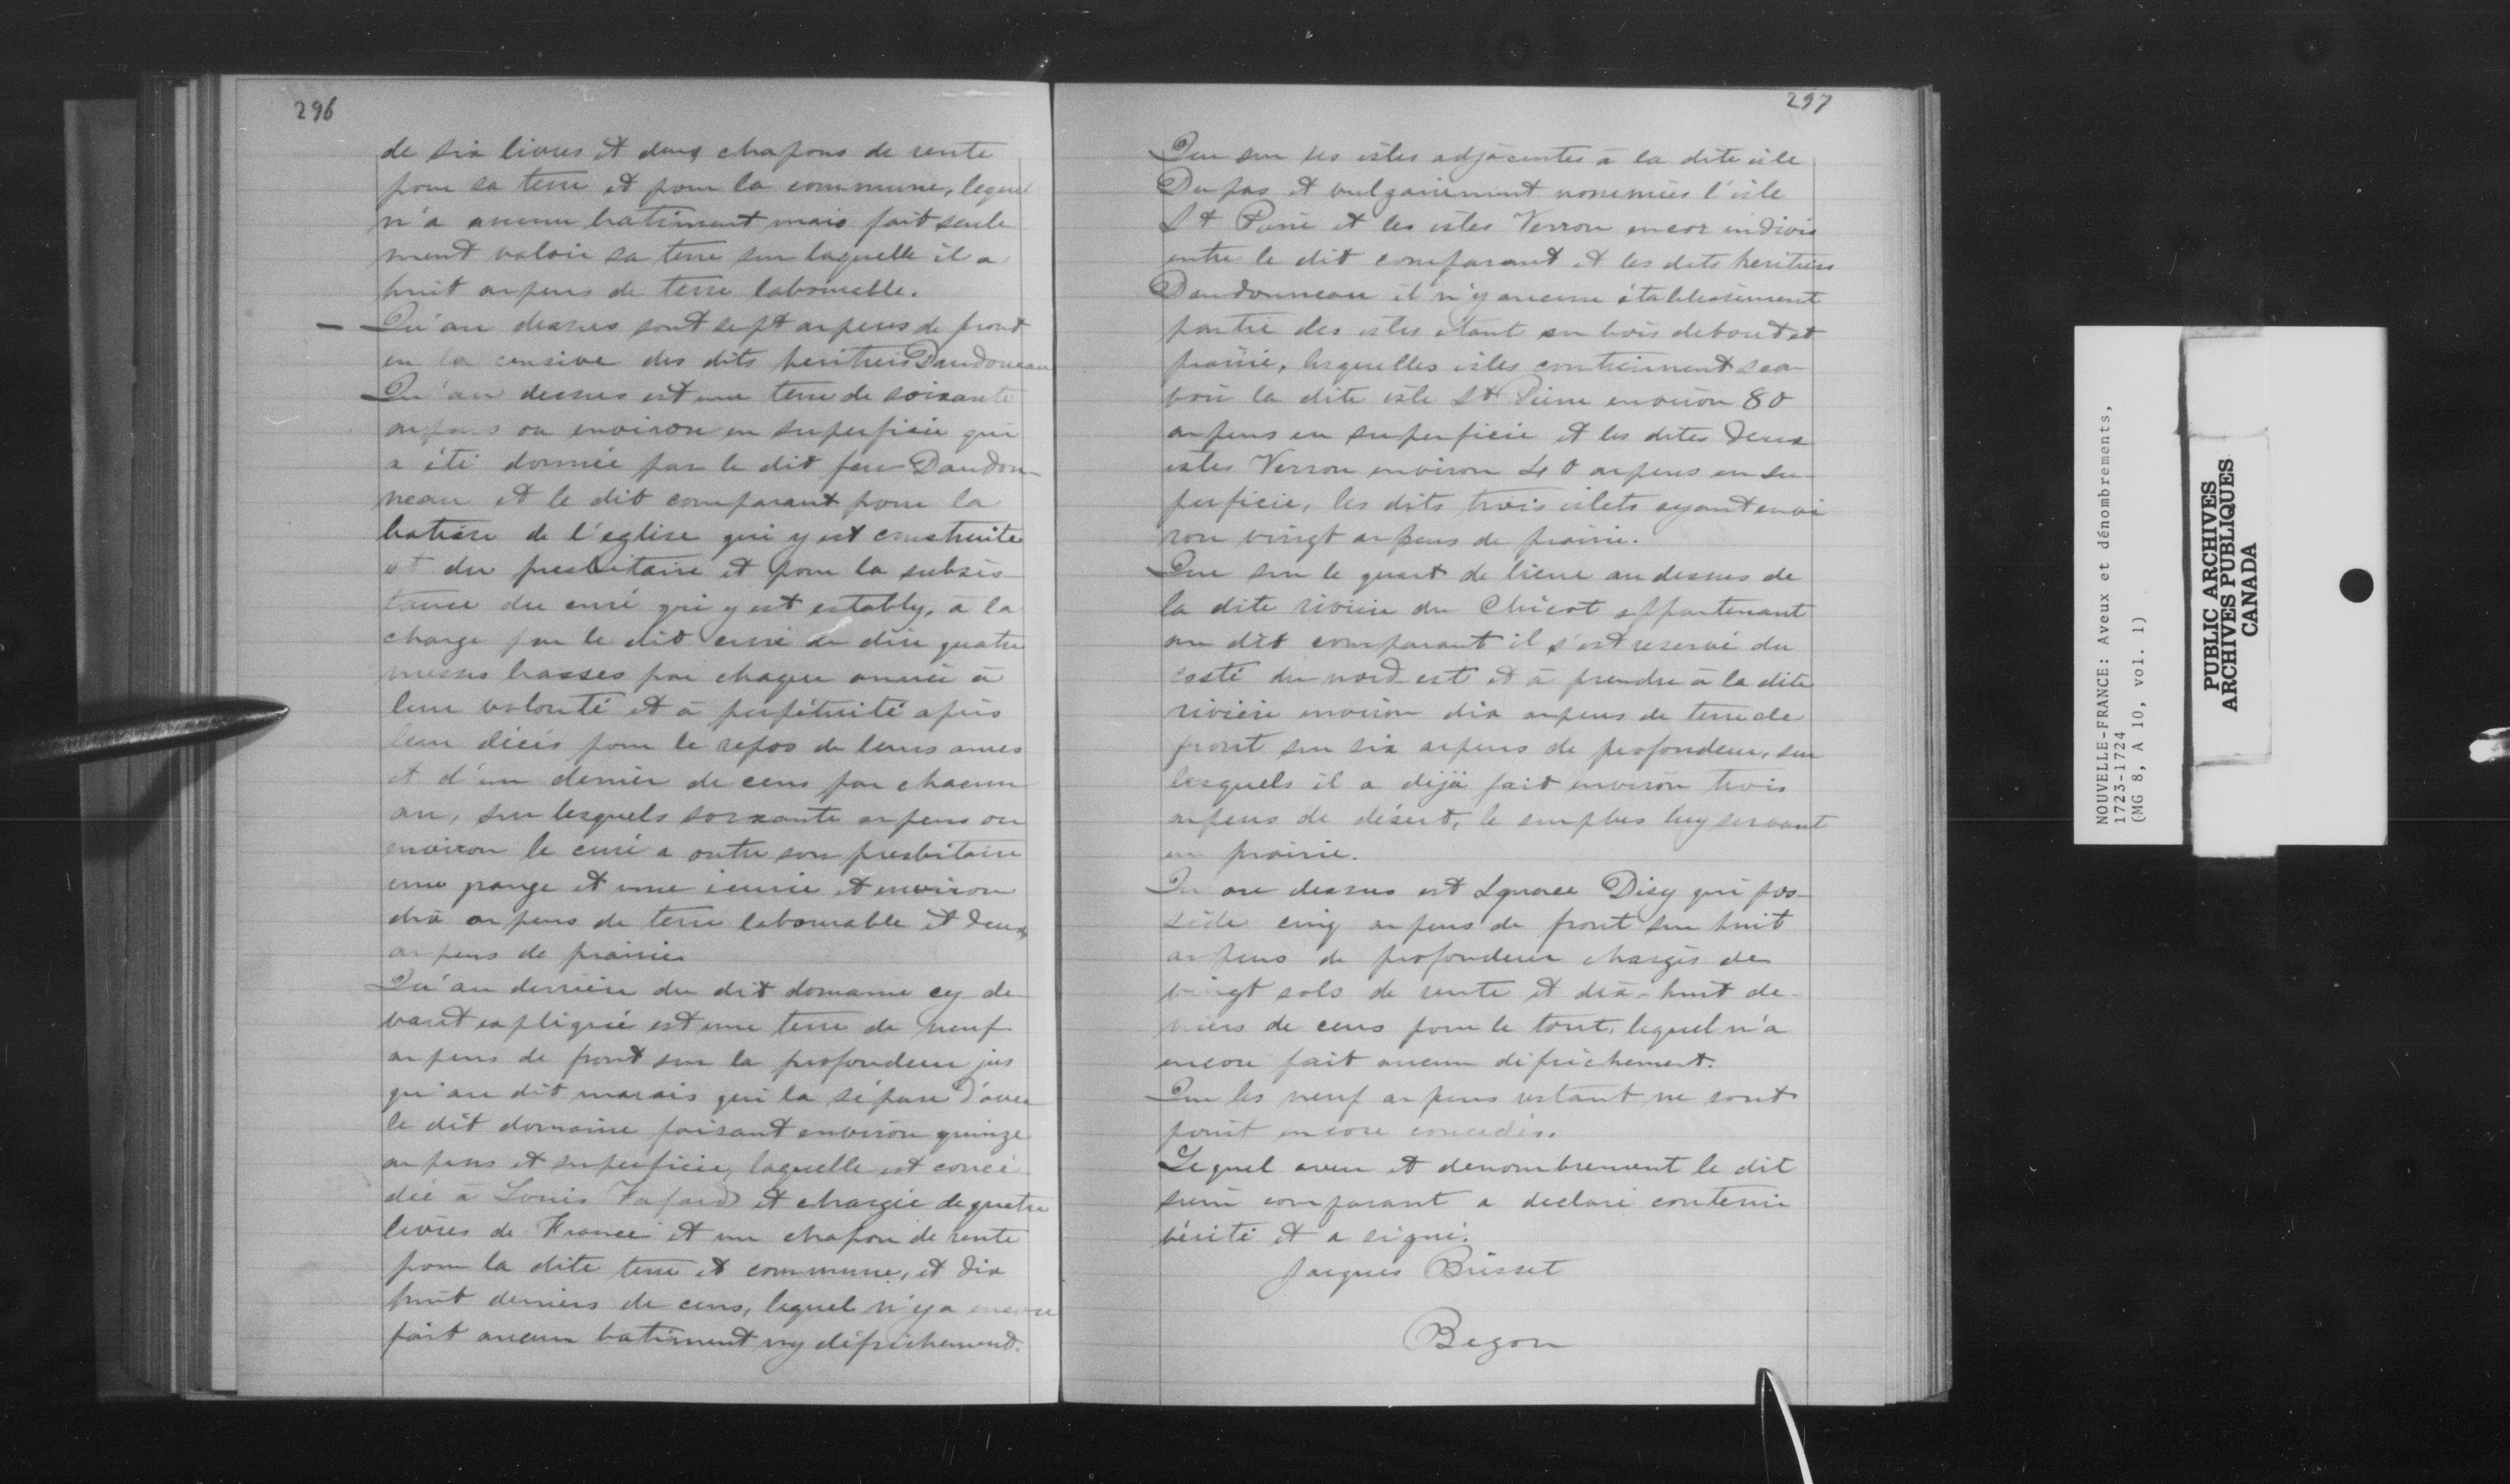 296
de six livres et deux chapons de rente
pour sa terre et pour la commune, lequel
n'a aucun batiment mais fait seule
ment valoir sa terre sur laquelle il a
huit arpens de terre labourable.
— Qu'au dessus sont sept arpens de front
en la censive des dits heritiers Dandoneau
Qu'au dessus est une terre de soixante
arpens ou environ en superficie qui
a été donnée par le dit feu Dandon-
neau et le dit comparant pour la
batisse de l'eglise qui y est construite
et du presbitaire et pour la subsis-
tance du curé qui y est estably, à la
charge par le dit curé de dire quatre
messes basses par chaque année à
leur volonté et à perpétuité après
leur décès pour le repos de leurs ames
et d'un denier de cens par chacun
an, sur lesquels soixante arpens ou
environ le curé a outre son presbitaire
une grange et une écurie et environ
dix arpens de terre labourable et deux
arpens de prairie
Qu'au derrière du dit domaine cy-de-
vant expliqué est une terre de neuf
arpens de front sur la profondeur jus
qu'au dit marais qui la sépare d'avec
le dit domaine faisant environ quinze
arpens et superficie, laquelle est concé
dée à Louis Fafard et chargée de quatre
livres de France et un chapon de rente
pour la dite terre et commune, et dix
huit deniers de cens, lequel n'y a encore
fait aucun batiment ny défrichement.
297
Que sur les isles adjacentes à la dite isle
Dupas et vulgairement nommées l'isle
St Pierre et les isles Verron encor indivis
entre le dit comparant et les dits heritiers
Dandonneau il n'y aucun établissement
partie des isles étant en bois debout et
prairie, lesquelles isles contiennent sca-
voir la dite isle St Pierre environ 80
arpens en superficie et les dites deux
isles Verron environ 40 arpens en su-
perficie, les dits trois islets ayant envi
ron vingt arpens de prairie.
Que sur le quart de lieue au dessus de
la dite rivière du Chicot appartenant
au dit comparant il s'est reservé du
costé du nord est et à prendre à la dite
rivière environ dix arpens de terre de
front sur six arpens de profondeur, sur
lesquels il a déjà fait environ trois
arpens de désert, le surplus luy servant
en prairie.
Qu'au dessus est Ignace Disy qui pos-
sède cinq arpens de front sur huit
arpens de profondeur chargés de
vingt sols de rente et dix-huit de-
niers de cens pour le tout, lequel n'a
encore fait aucun défrichement.
Que les neuf arpens restant ne sont
point encore concedés.
Lequel aveu et denombrement le dit
sieur comparant a declaré contenir
vérité et a signé.
Jacques Brisset
Begon
NOUVELLE-FRANCE: Aveux et dénombrements,
1723-1724
(MG 8, A 10, vol. 1)
PUBLIC ARCHIVES
ARCHIVES PUBLIQUES
CANADA